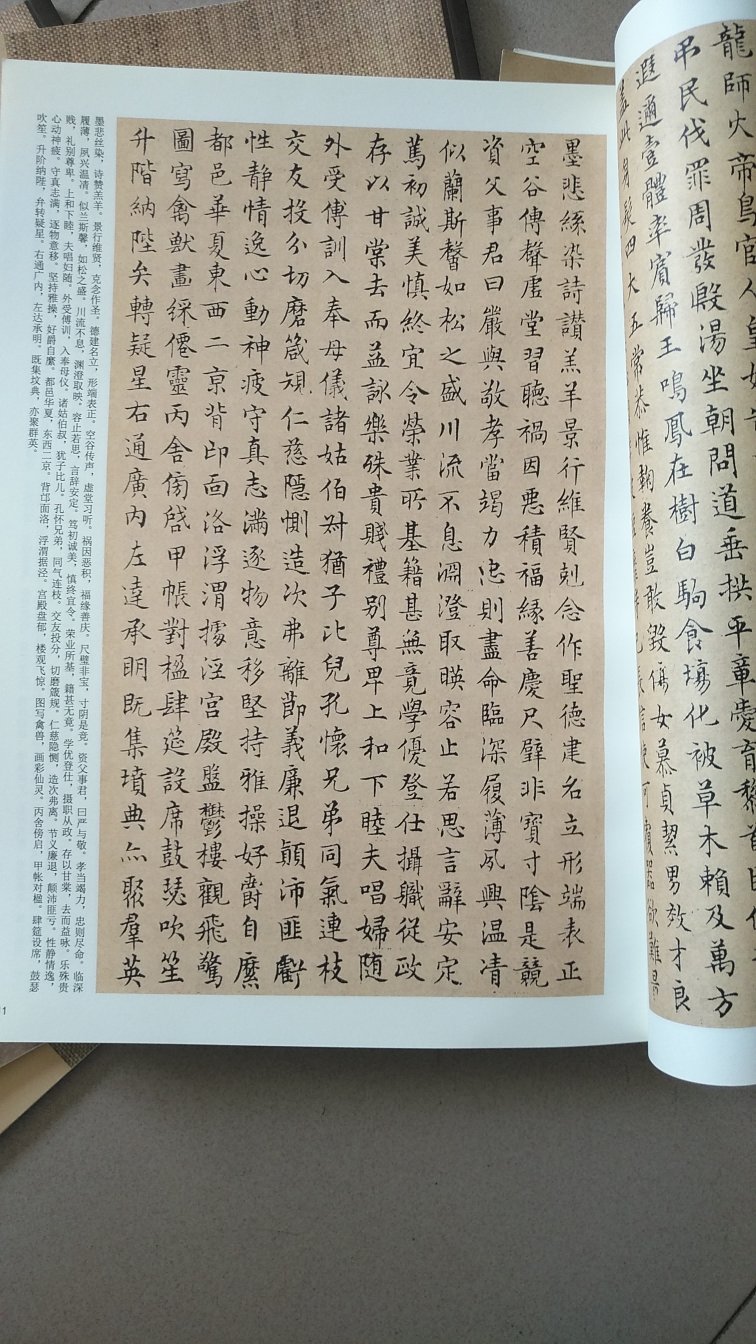 龍師火帝鳥官人皇
弔民伐罪周發殷湯坐朝問道垂拱平章愛育
遐邇壹體率賓歸王鳴鳳在樹白駒食場化被草木賴及萬方
蓋此身髮四大五常恭惟鞠養豈敢毀傷女慕貞絜男效才良
信使可覆器欲難量
墨悲絲染詩讚羔羊景行維賢剋念作聖德建名立形端表正
空谷傳聲虛堂習聽禍因惡積福緣善慶尺璧非寶寸陰是競
資父事君曰嚴與敬孝當竭力忠則盡命臨深履薄夙興温凊
似蘭斯馨如松之盛川流不息淵澄取暎容止若思言辭安定
篤初誠美慎終宜令榮業所基籍甚無竟學優登仕攝職從政
存以甘棠去而益詠樂殊貴賤禮別尊卑上和下睦夫唱婦隨
外受傅訓入奉母儀諸姑伯叔猶子比兒孔懷兄弟同氣連枝
交友投分切磨箴規仁慈隱惻造次弗離節義廉退顛沛匪虧
性静情逸心動神疲守真志滿逐物意移堅持雅操好爵自縻
都邑華夏東西二京背邙面洛浮渭據涇宮殿盤鬱樓觀飛驚
圖寫禽獸畫綵僊靈丙舍傍啓甲帳對楹肆筵設席鼓瑟吹笙
升階納陛弁轉疑星右通廣内左達承明既集墳典亦聚羣英
墨悲丝染，诗赞羔羊。景行维贤，克念作圣。德建名立，形端表正。空谷传声，虚堂习听。祸因恶积，福缘善庆。尺璧非宝，寸阴是竞。资父事君，曰严与敬。孝当竭力，忠则尽命。临深
履薄，夙兴温凊。似兰斯馨，如松之盛。川流不息，渊澄取映。容止若思，言辞安定。笃初诚美，慎终宜令。荣业所基，籍甚无竟。学优登仕，摄职从政。存以甘棠，去而益咏。乐殊贵
贱，礼别尊卑。上和下睦，夫唱妇随。外受傅训，入奉母仪。诸姑伯叔，犹子比儿。孔怀兄弟，同气连枝。交友投分，切磨箴规。仁慈隐恻，造次弗离。节义廉退，颠沛匪亏。性静情逸，
心动神疲。守真志满，逐物意移。坚持雅操，好爵自縻。都邑华夏，东西二京。背邙面洛，浮渭据泾。宫殿盘郁，楼观飞惊。图写禽兽，画彩仙灵。丙舍傍启，甲帐对楹。肆筵设席，鼓瑟
吹笙。升阶纳陛，弁转疑星。右通广内，左达承明。既集坟典，亦聚群英。